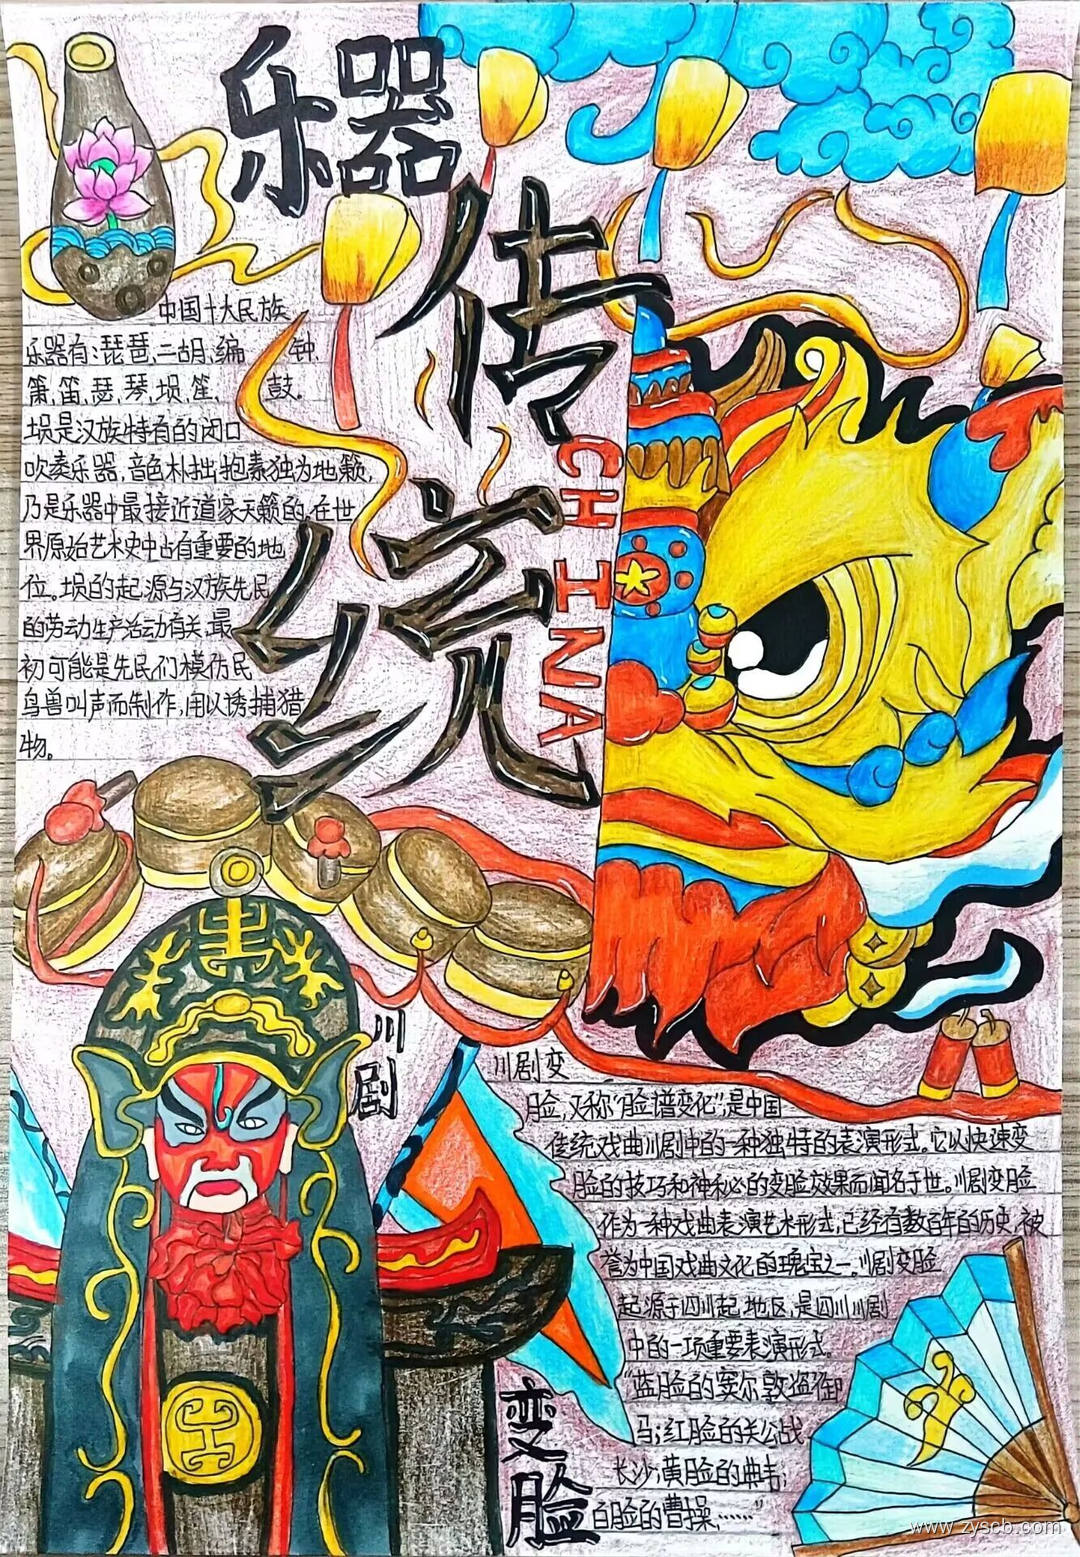 乐器
传统
CHINA
中国十大民族
乐器有:琵琶,二胡,编 钟,
箫,笛,瑟,琴,埙,笙, 鼓。
埙是汉族特有的闭口
吹奏乐器,音色朴拙抱素独为地籁,
乃是乐器中最接近道家天籁的,在世
界原始艺术史中占有重要的地
位。埙的起源与汉族先民
的劳动生产活动有关,最
初可能是先民们模仿民
鸟兽叫声而制作,用以诱捕猎
物。
川剧
川剧变
脸,又称“脸谱变化”,是中国
传统戏曲川剧中的一种独特的表演形式。它以快速变
脸的技巧和神秘的变脸效果而闻名于世。川剧变脸
作为一种戏曲表演艺术形式,已经有数百年的历史,被
誉为中国戏曲文化的瑰宝之一。川剧变脸
起源于四川起,地区,是四川川剧
中的一项重要表演形式。
“蓝脸的窦尔敦盗御
马;红脸的关公战
长沙;黄脸的典韦;
白脸的曹操,……”
变脸
www.zyscb.com